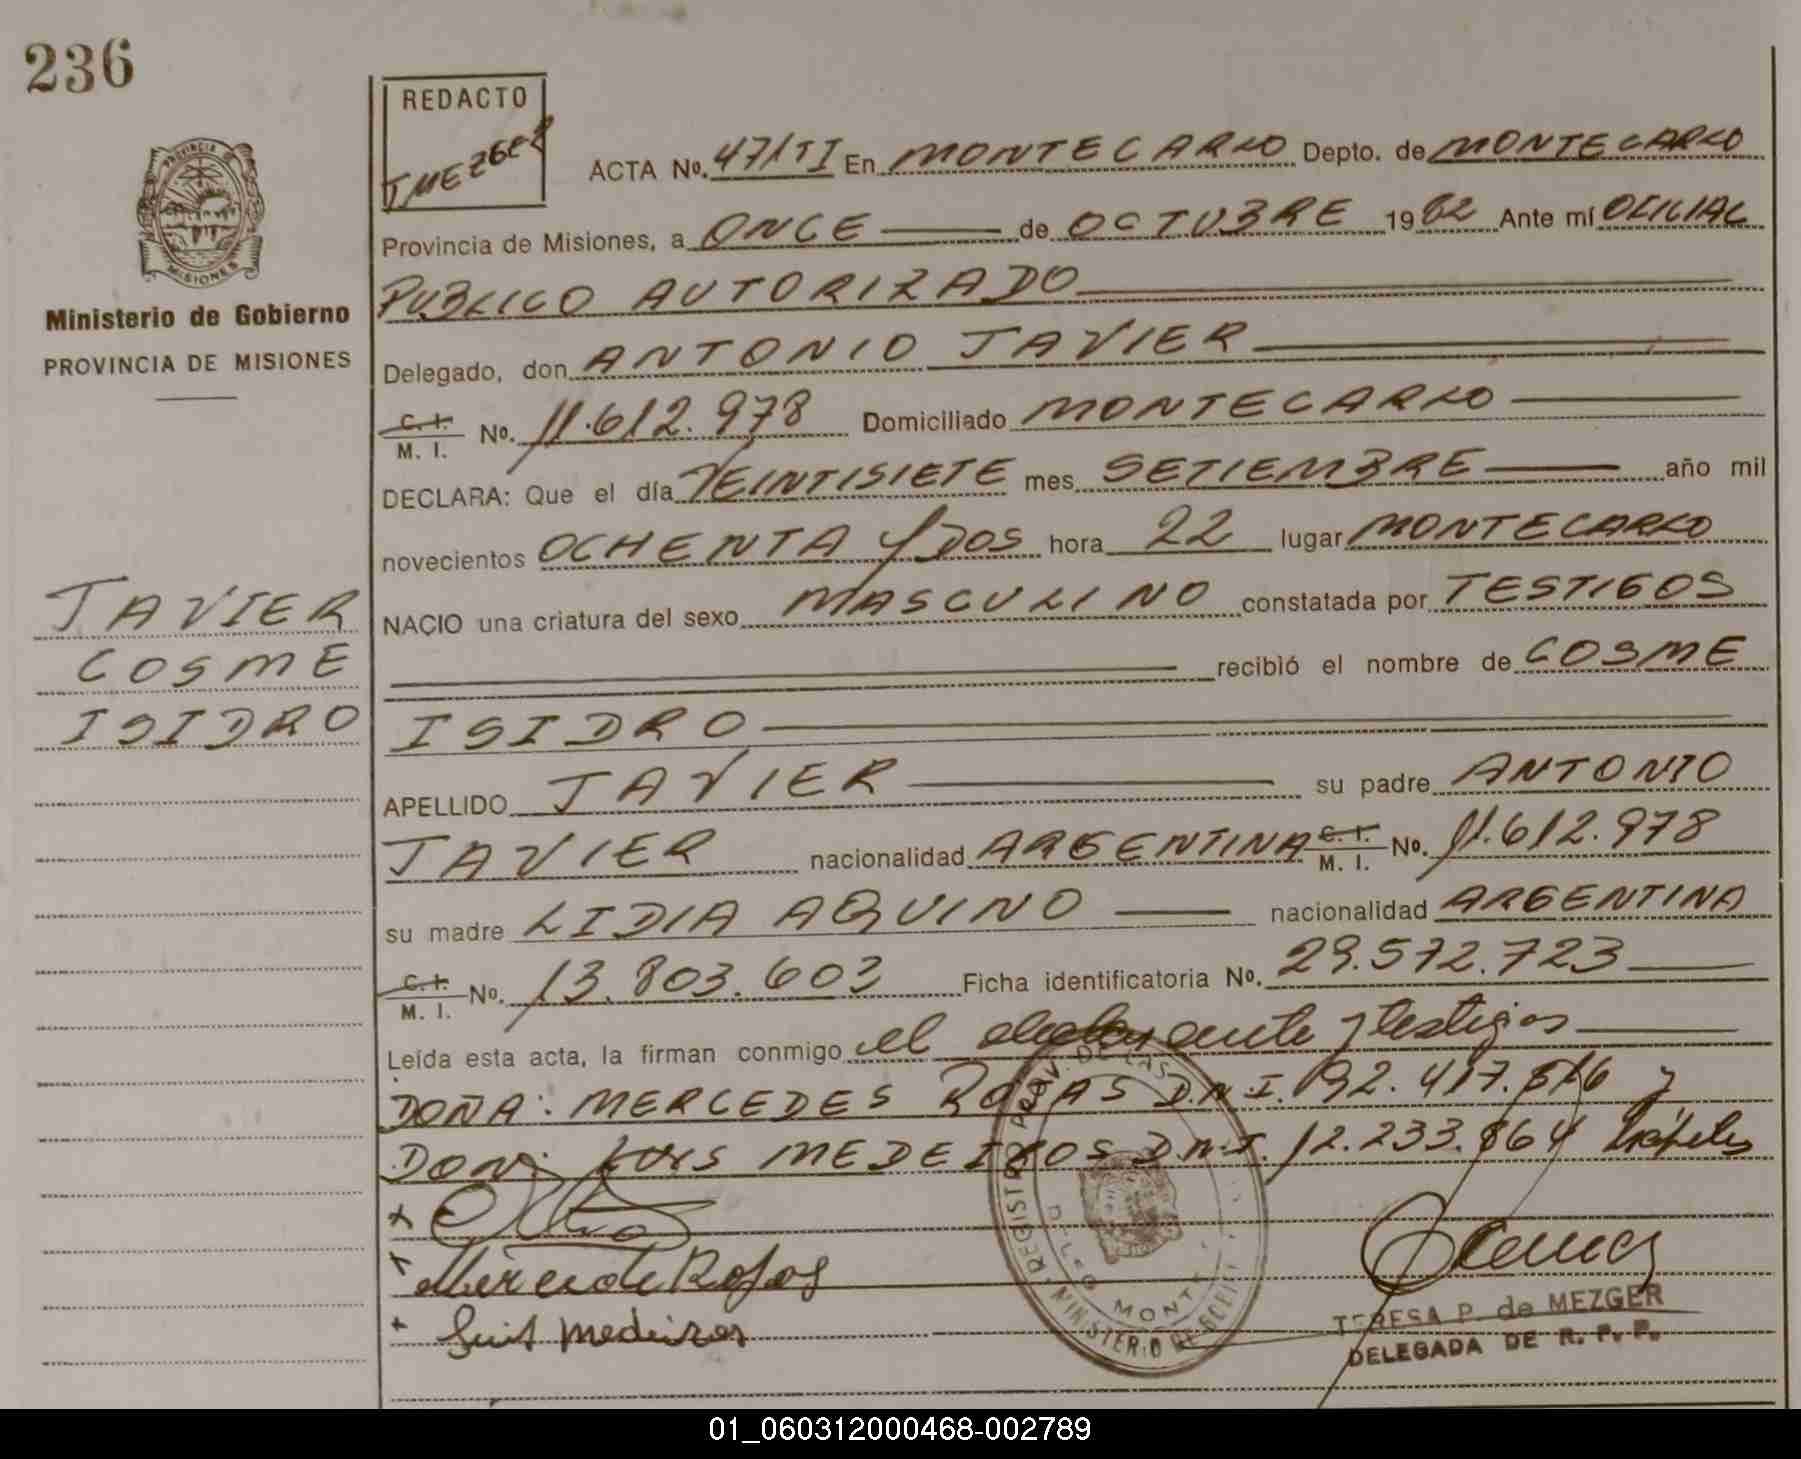 236
REDACTO
TMEZGER
ACTA No. 47/TI En MONTECARLO Depto. de MONTECARLO
Provincia de Misiones, a ONCE de OCTUBRE 1982 Ante mí OFICIAL
PUBLICO AUTORIZADO
PROVINCIA
MISIONES
Ministerio de Gobierno
PROVINCIA DE MISIONES
Delegado, don ANTONIO JAVIER
C. I. M. I. No. 11.612.978 Domiciliado MONTECARLO
DECLARA: Que el día VEINTISIETE mes SETIEMBRE año mil
novecientos OCHENTA y DOS hora 22 lugar MONTECARLO
JAVIER
COSME
ISIDRO
NACIO una criatura del sexo MASCULINO constatada por TESTIGOS
recibió el nombre de COSME
ISIDRO
APELLIDO JAVIER su padre ANTONIO
JAVIER nacionalidad ARGENTINA C. I. M. I. No. 11.612.978
su madre LIDIA AQUINO nacionalidad ARGENTINA
C. I. M. I. No. 13.803.603 Ficha identificatoria No. 29.572.723
Leída esta acta, la firman conmigo el declarante y testigos
DOÑA: MERCEDES ROJAS D.N.I. 92.417.516 y
DON: LUIS MEDEIROS D.N.I. 12.233.864
Mercede Rojas
Luis Medeiros
REGISTRO PROV. DE LAS
MINISTERIO DE
TERESA P. de MEZGER
DELEGADA DE R. P. P.
01_060312000468-002789